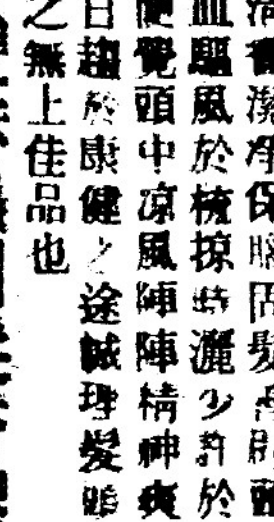 潔淨保腦固髮
血驅風於梳掠時灑少許於
便覺頭中凉風陣陣精神爽
日趨於康健之途誠理髮
之無上佳品也